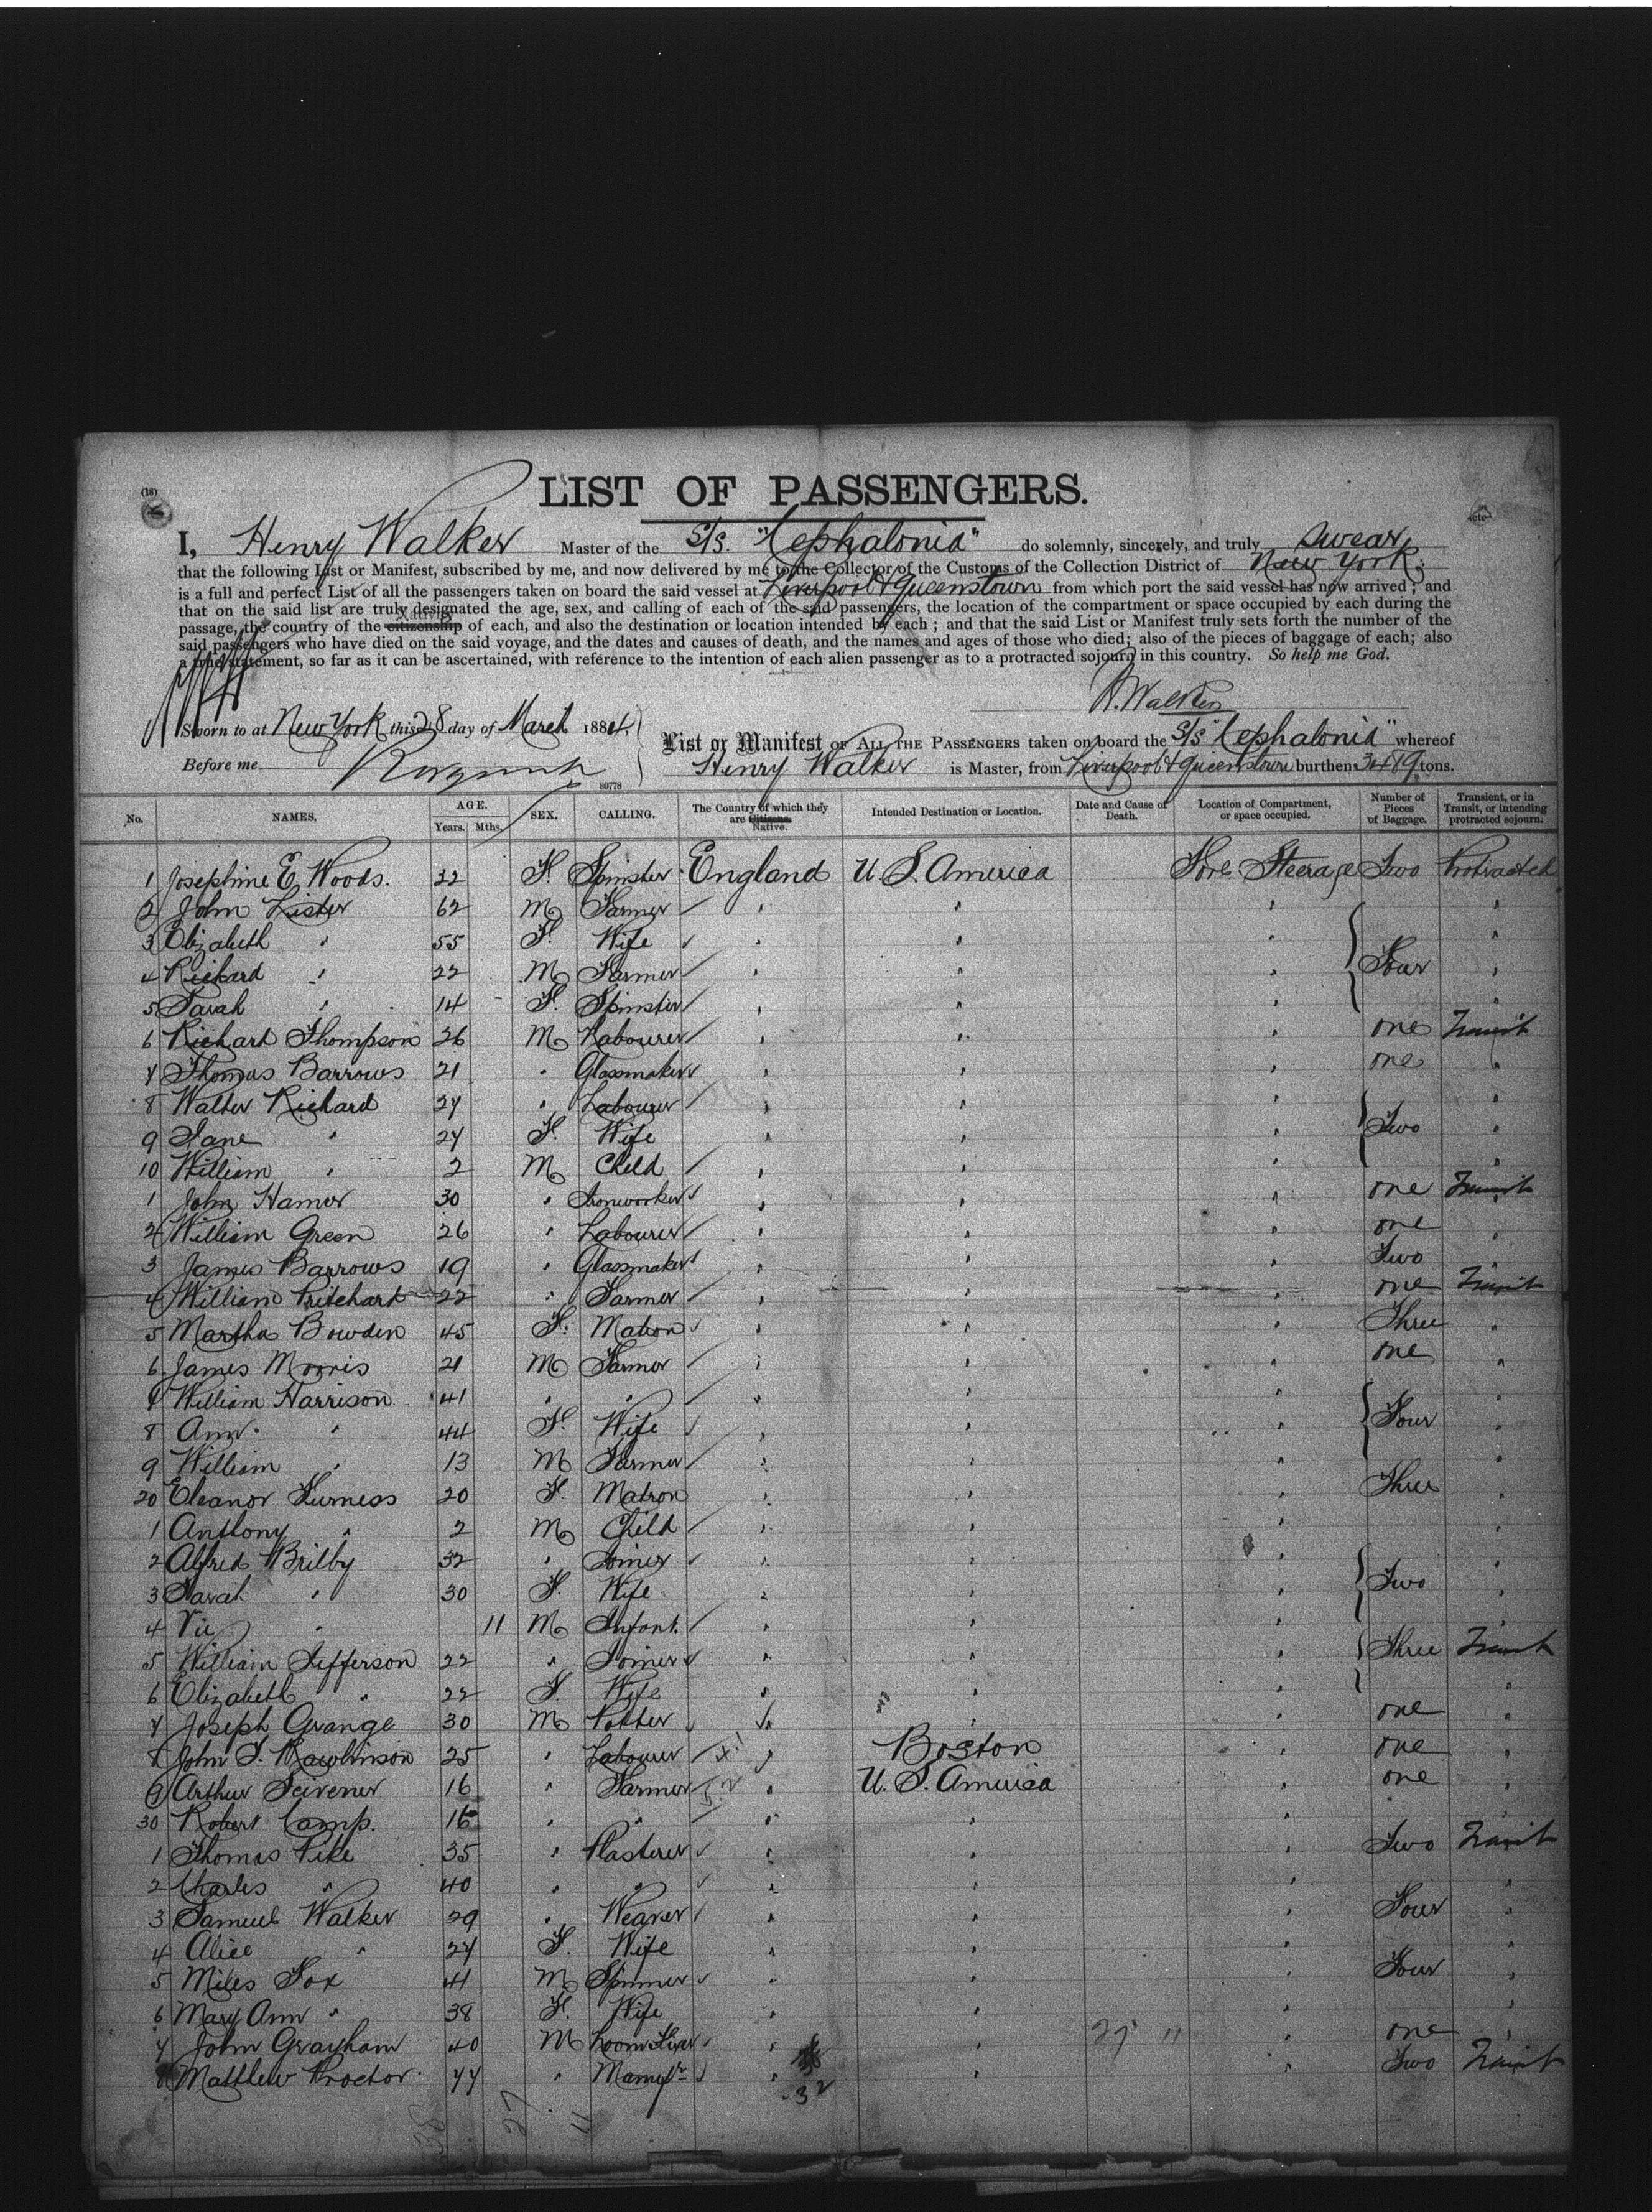 (18)
LIST OF PASSENGERS.
I, Henry Walker Master of the S/S. "Cephalonia" do solemnly, sincerely, and truly swear
that the following List or Manifest, subscribed by me, and now delivered by me to the Collector of the Customs of the Collection District of New York
is a full and perfect List of all the passengers taken on board the said vessel at Liverpool & Queenstown from which port the said vessel has now arrived; and
that on the said list are truly designated the age, sex, and calling of each of the said passengers, the location of the compartment or space occupied by each during the
Native
passage, the country of the citizenship of each, and also the destination or location intended by each; and that the said List or Manifest truly sets forth the number of the
said passengers who have died on the said voyage, and the dates and causes of death, and the names and ages of those who died; also of the pieces of baggage of each; also
a true statement, so far as it can be ascertained, with reference to the intention of each alien passenger as to a protracted sojourn in this country. So help me God.
H. Walker
Sworn to at New York this 28 day of March 1884.
List or Manifest OF ALL THE PASSENGERS taken on board the S/S "Cephalonia" whereof
Before me
Henry Walker is Master, from Liverpool & Queenstown burthen 3489 tons.
80778
No. NAMES. AGE. Years. Mths. SEX. CALLING. The Country of which they are Citizens. Native. Intended Destination or Location. Date and Cause of Death. Location of Compartment, or space occupied. Number of Pieces of Baggage. Transient, or in Transit, or intending protracted sojourn.
1 Josephine E Woods. 32 F. Spinster England U. S. America Fore Steerage Two Protracted
2 John Lister 62 M Farmer " " " "
3 Elizabeth " 55 F. Wife " " " "
4 Richard " 22 M Farmer " " " Four "
5 Sarah " 14 F. Spinster " " " "
6 Richard Thompson 26 M Labourer " " " one Transit
7 Thomas Barrows 21 " Glassmaker " " " one "
8 Walter Richard 27 " Labourer " " " "
9 Jane " 27 F. Wife " " " Two "
10 William " 2 M Child " " " "
1 John Hamer 30 " Ironworker " " " one Transit
2 William Green 26 " Labourer " " " one "
3 James Barrows 19 " Glassmaker " " " Two "
4 William Pritchart 22 " Farmer " " " one Transit
5 Martha Bowden 45 F. Matron " " " Three "
6 James Morris 21 M Farmer " " " one "
7 William Harrison 41 " " " " " "
8 Ann " 44 F. Wife " " " Four "
9 William " 13 M Farmer " " " "
20 Eleanor Furness 20 F. Matron " " " Three "
1 Anthony " 2 M Child " " " "
2 Alfred Brilby 32 " Joiner " " " "
3 Sarah " 30 F. Wife " " " Two "
4 " 11 M Infant. " " " "
5 William Jefferson 22 " Joiner " " " Three Transit
6 Elizabeth " 22 F. Wife " " " "
7 Joseph Grange 30 M Potter " " " one "
8 John T. Rawlinson 25 " Labourer " Boston " one "
9 Arthur Scivener 16 " Farmer " U. S. America " one "
30 Robert Camp. 16 " " " " " "
1 Thomas Pike 35 " Plasterer " " " Two Transit
2 Charles " 40 " " " " " "
3 Samuel Walker 29 " Weaver " " " Four "
4 Alice " 27 F. Wife " " " "
5 Miles Fox 41 M Spinner " " " Four "
6 Mary Ann " 38 F. Wife " " " "
7 John Grayham 40 M Loom " " 27 11 " one "
8 Matthew Proctor 44 " Manufr " " " Two Transit
32
38 27 11